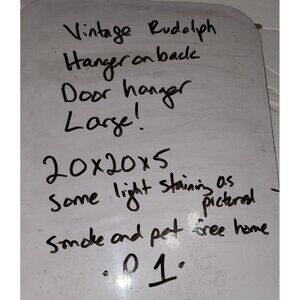 Vintage Rudolph
Hanger on back
Door hanger
Large!
20x20x5
Some light staining as
pictured
smoke and pet free home